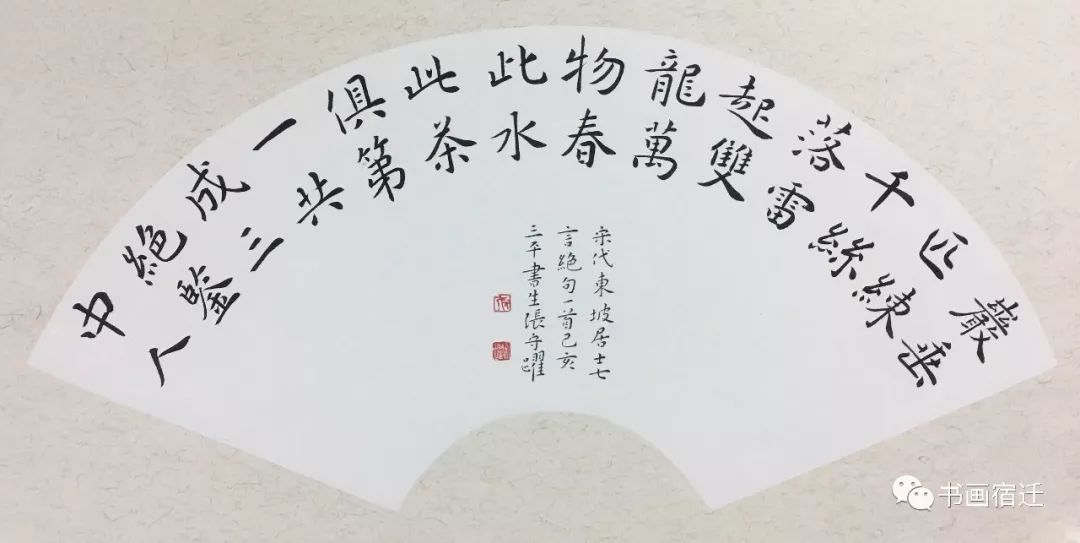 巖垂
匹練
千絲
落雷
起雙
龍萬
物春
此水
此茶
俱第
一共
成三
絕鑒
中人
宋代東坡居士七
言絕句一首己亥
三平書生張守躍
书画宿迁